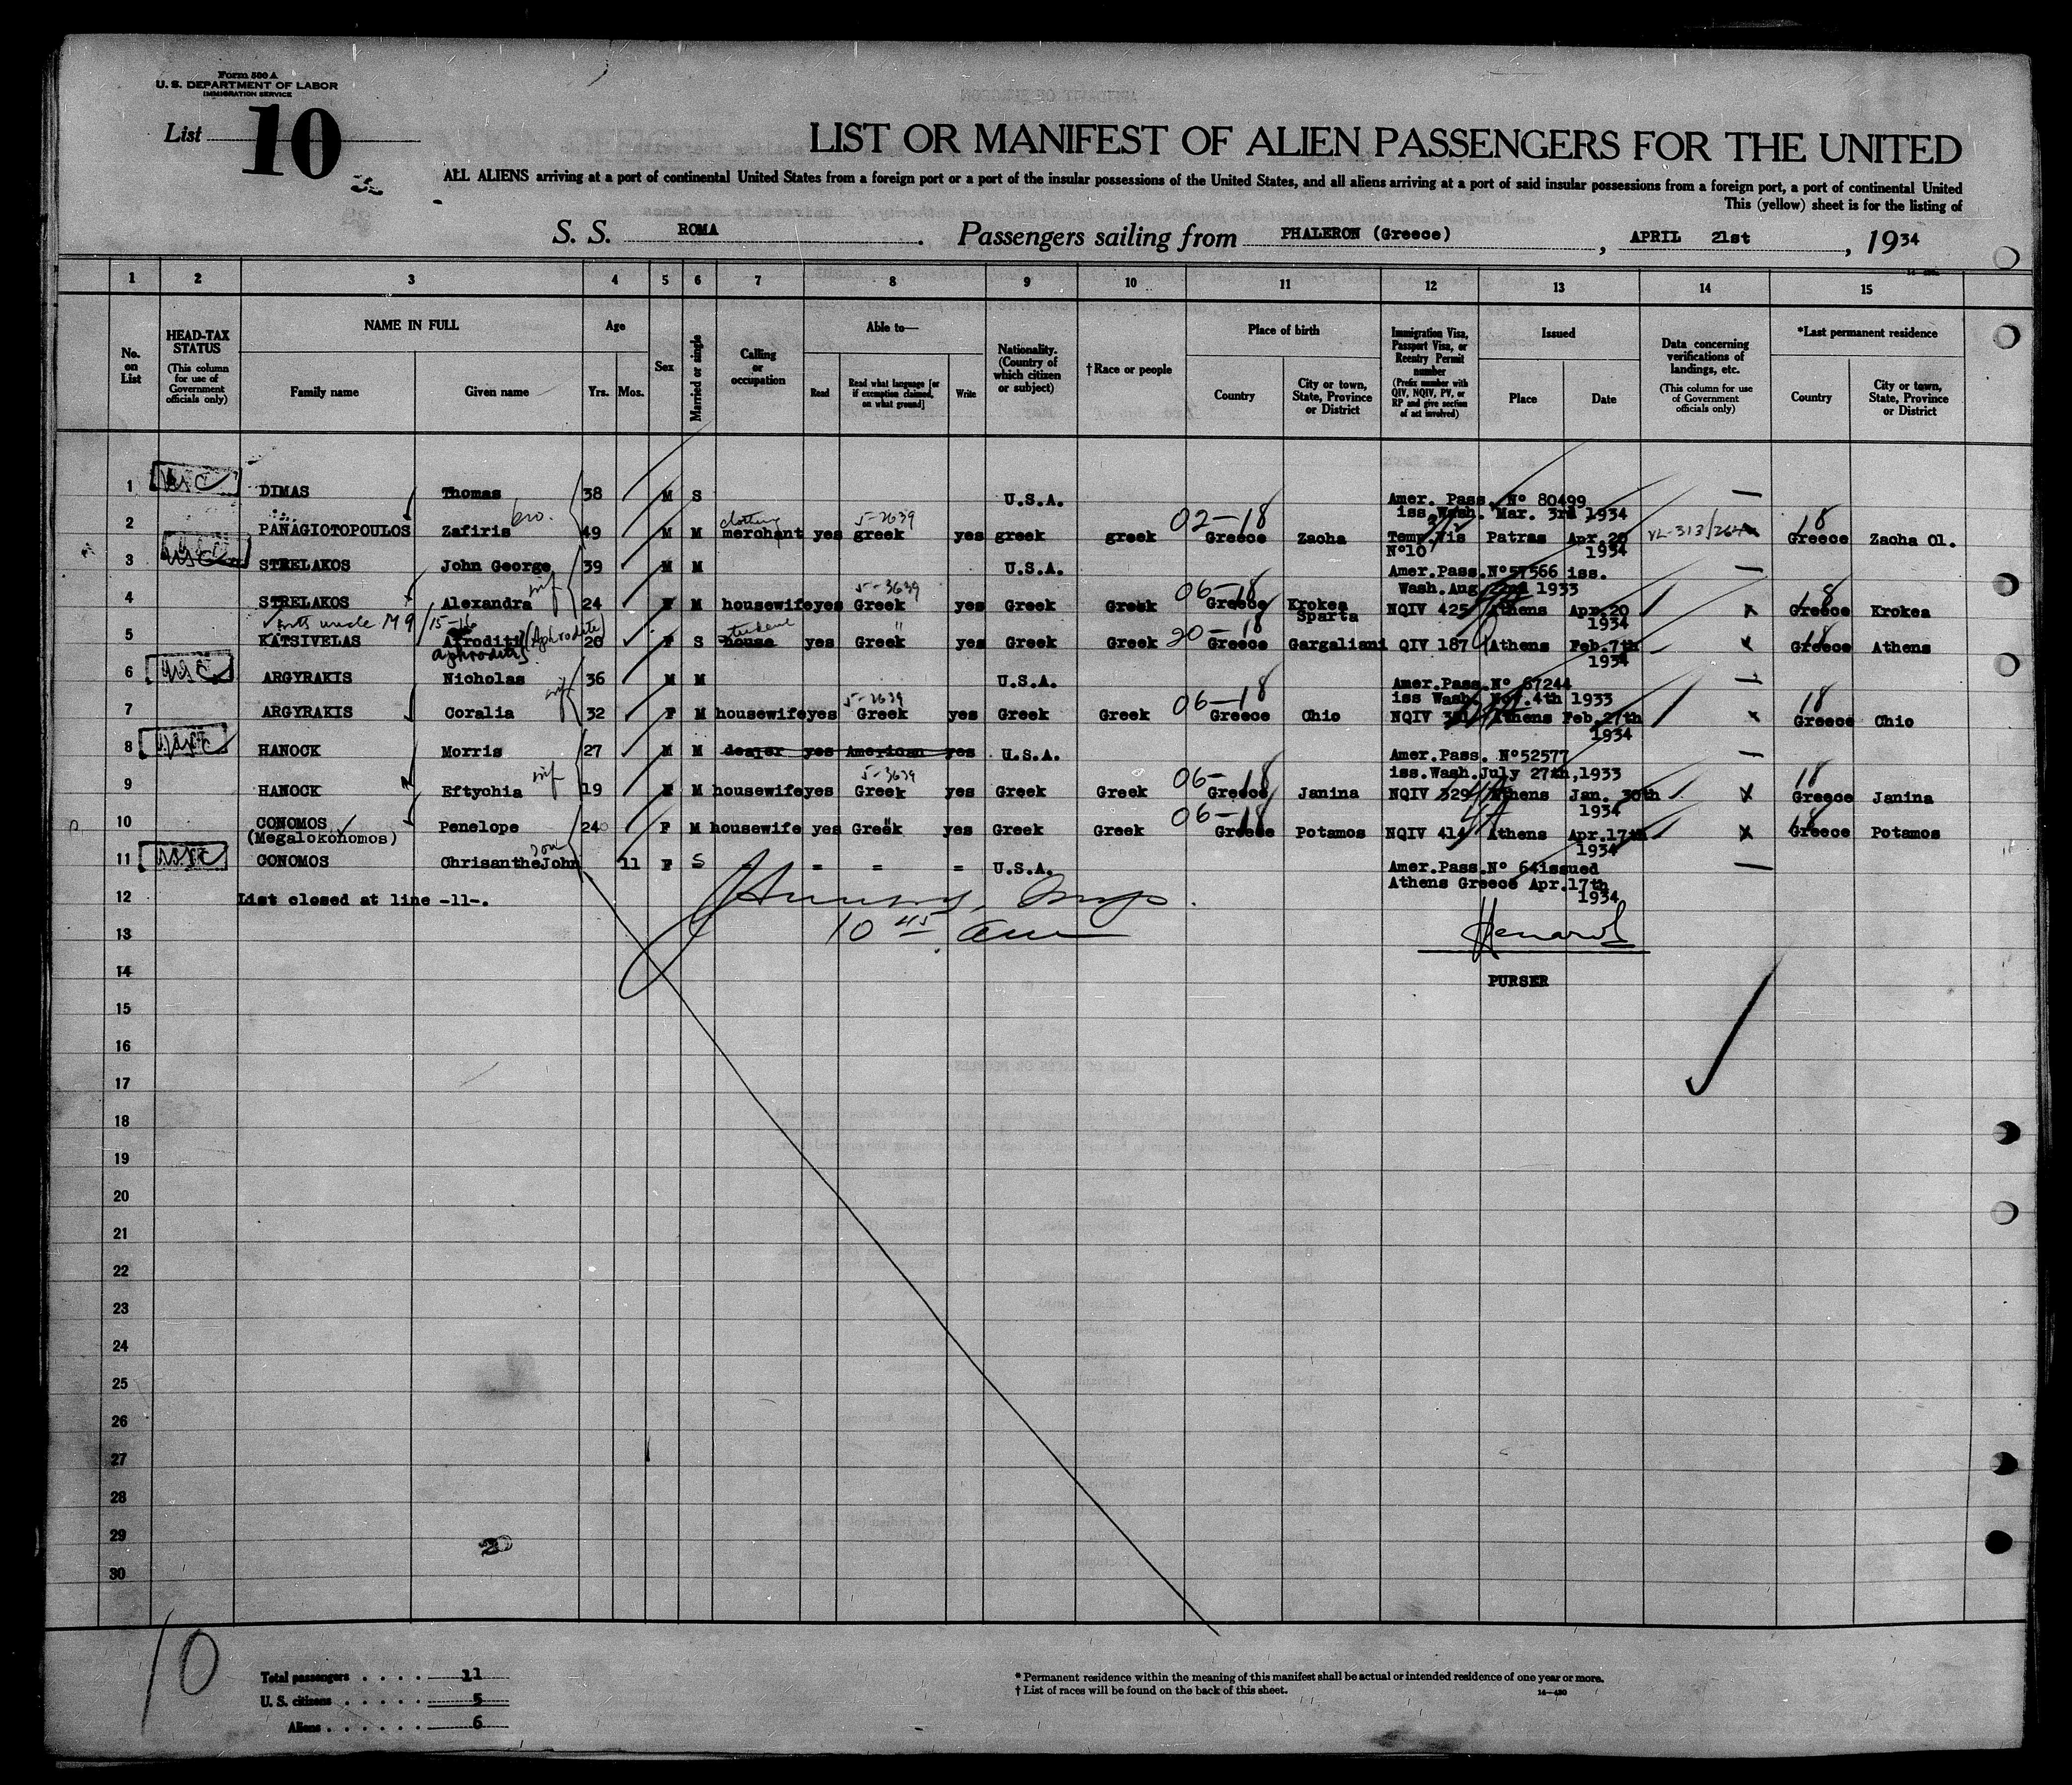 Form 500 A
U. S. DEPARTMENT OF LABOR
IMMIGRATION SERVICE
List 10
LIST OR MANIFEST OF ALIEN PASSENGERS FOR THE UNITED
ALL ALIENS arriving at a port of continental United States from a foreign port or a port of the insular possessions of the United States, and all aliens arriving at a port of said insular possessions from a foreign port, a port of continental United
This (yellow) sheet is for the listing of
S. S. ROMA. Passengers sailing from PHALERON (Greece), APRIL 21st, 1934
1 2 3 4 5 6 7 8 9 10 11 12 13 14 15
No. on List
HEAD-TAX STATUS (This column for use of Government officials only)
NAME IN FULL
Family name Given name
Age
Yrs. Mos.
Sex
Married or single
Calling or occupation
Able to—
Read Read what language [or if exemption claimed, on what ground] Write
Nationality. (Country of which citizen or subject)
†Race or people
Place of birth
Country City or town, State, Province or District
Immigration Visa, Passport Visa, or Reentry Permit number (Prefix number with QIV, NQIV, PV, or RP and give section of act involved)
Issued
Place Date
Data concerning verifications of landings, etc. (This column for use of Government officials only)
*Last permanent residence
Country City or town, State, Province or District
1 USC DIMAS Thomas 38 M S U.S.A. Amer. Pass. Nº 80499
iss.Wash. Mar. 3rd 1934
bro. clothing 5-2639 02-18 18
2 PANAGIOTOPOULOS Zafiris 49 M M merchant yes greek yes greek greek Greece Zacha Temp.Vis Patras Apr.20 VL-313/264 Greece Zacha Ol.
Nº10 1934
3 USC STRELAKOS John George 39 M M U.S.A. Amer.Pass.Nº57566 iss.
Wash.Aug 22nd 1933
wif 5-3639 06-18 18
4 STRELAKOS Alexandra 24 F M housewife yes Greek yes Greek Greek Greece Krokea Sparta NQIV 425 Athens Apr.20 Greece Krokea
1934
5 KATSIVELAS Afroditi (Aphrodite) 20 F S house yes Greek yes Greek Greek 20-18 Greece Gargaliani QIV 187 Athens Feb.7th Greece Athens
Aphrodite 1934
6 USC ARGYRAKIS Nicholas 36 M M U.S.A. Amer.Pass.Nº 67244
iss Wash. Nov.4th 1933
wif 5-2639 06-18 18
7 ARGYRAKIS Coralia 32 F M housewife yes Greek yes Greek Greek Greece Chio NQIV Athens Feb.27th Greece Chio
1934
8 USC HANOCK Morris 27 M M dealer yes American yes U.S.A. Amer.Pass. Nº52577
iss.Wash.July 27th,1933
wif 5-3639 06-18 18
9 HANOCK Eftychia 19 F M housewife yes Greek yes Greek Greek Greece Janina NQIV 329 Athens Jan. 30th Greece Janina
1934
06-18 18
10 CONOMOS Penelope 24 F M housewife yes Greek yes Greek Greek Greece Potamos NQIV 414 Athens Apr.17th Greece Potamos
(Megalokonomos) 1934
son
11 USC CONOMOS Chrisanthe John 11 F S = = = = U.S.A. Amer.Pass.Nº 64issued
Athens Greece Apr.17th
1934
12 List closed at line -11-.
13 10 45 am
14 PURSER
15
16
17
18
19
20
21
22
23
24
25
26
27
28
29
30
10
Total passengers . . . . 11
U. S. citizens . . . . . 5
Aliens . . . . . . 6
* Permanent residence within the meaning of this manifest shall be actual or intended residence of one year or more.
† List of races will be found on the back of this sheet.
14—430